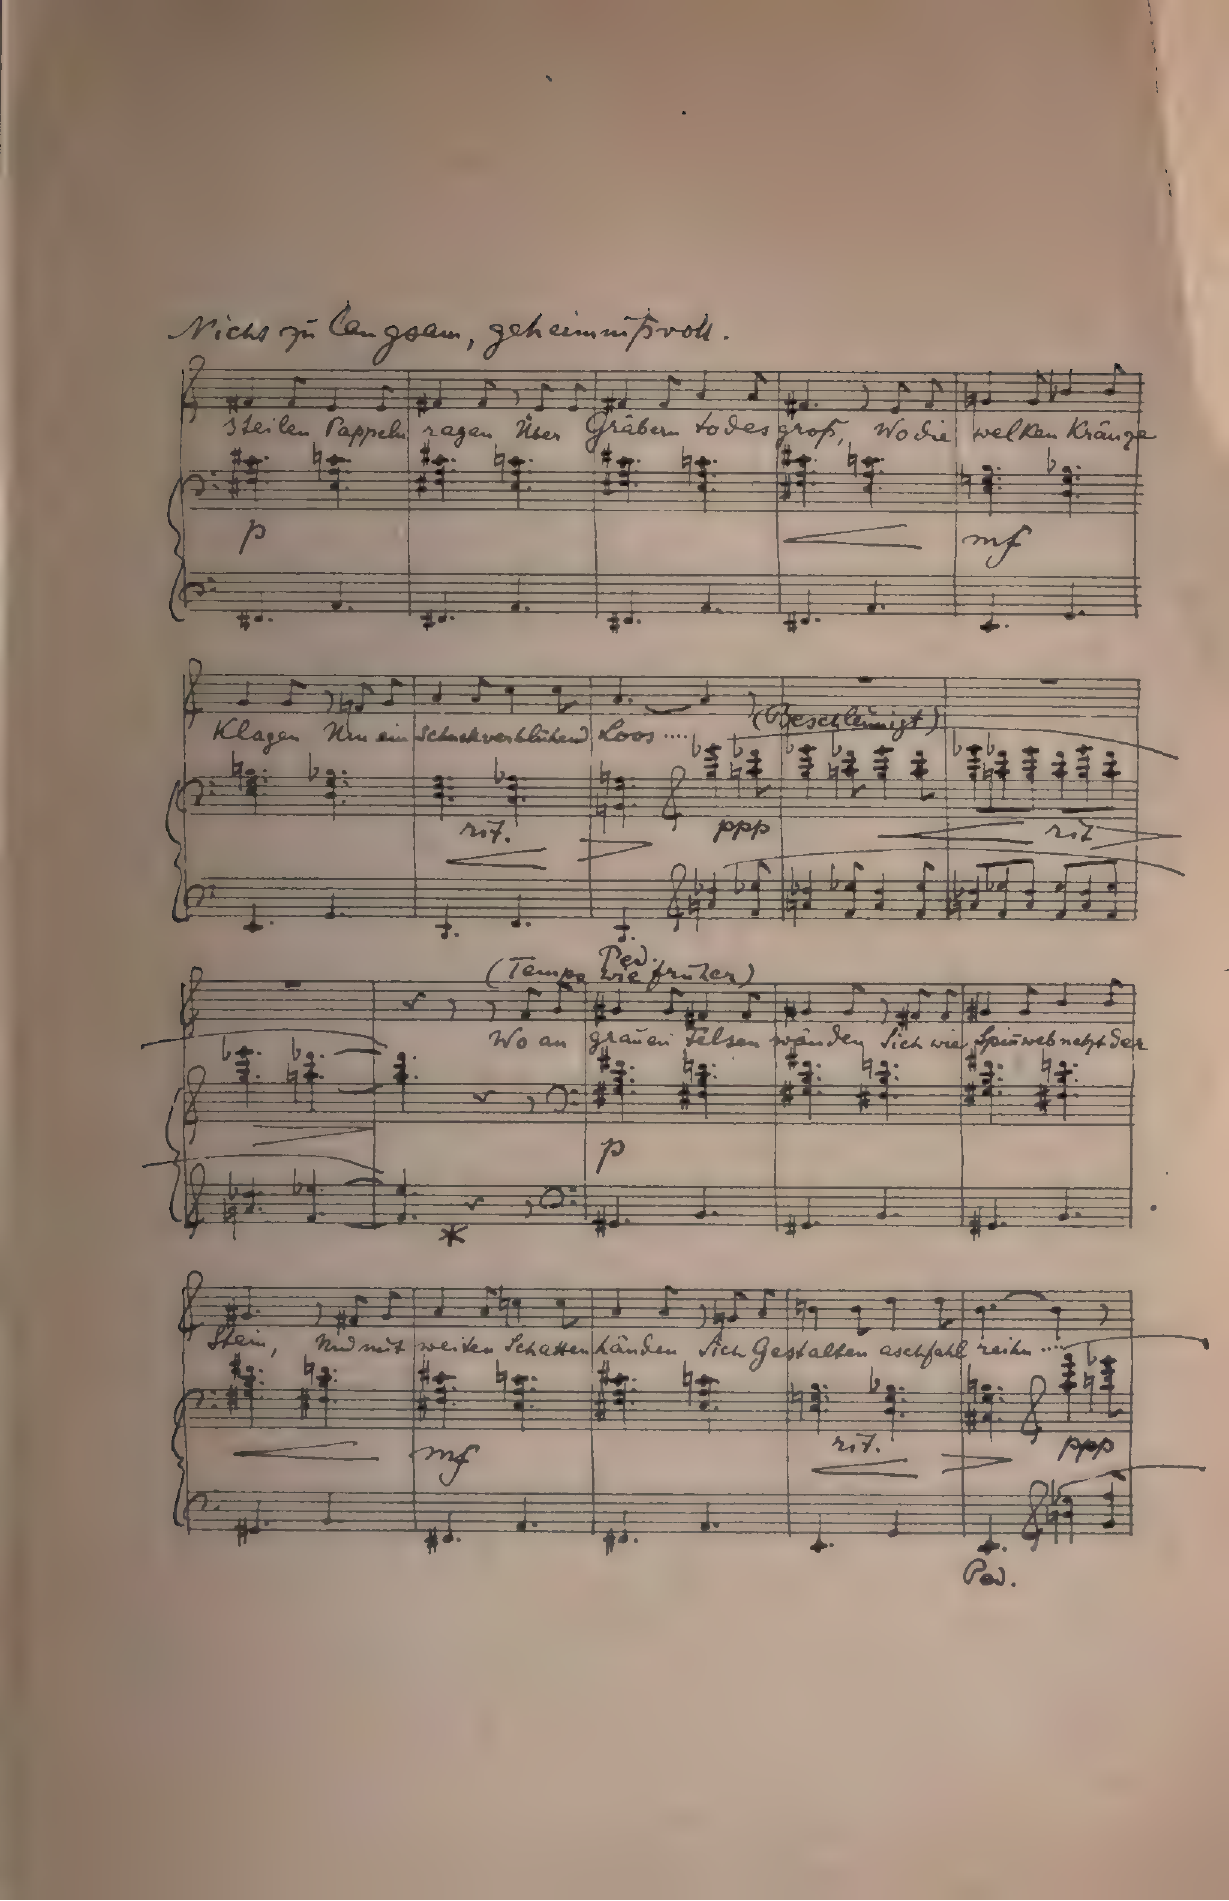 Nicht zu langsam, geheimnißvoll.
steilen Pappeln ragen Über Gräbern todes groß, Wo die welken Kränze
p mf
Klagen Um ein schnell verblühend Loos ....
(Beschleunigt)
rit. ppp rit
Ped.
(Tempo wie früher)
Wo an grauen Felsen wänden Sich wie Spinnweb netzt der
p
Stein, Und mit weiten Schatten händen Sich Gestalten aschfahl reihn ....
mf rit. ppp
Ped.